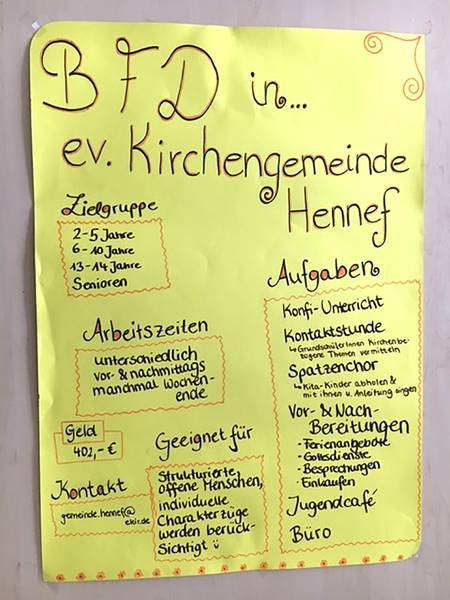 BFD in...
ev. Kirchengemeinde
Hennef
Zielgruppe
2-5 Jahre
6-10 Jahre
13-14 Jahre
Senioren
Arbeitszeiten
unterschiedlich
vor- & nachmittags
manchmal Wochen-
ende
Geld
402,- €
Kontakt
gemeinde.hennef@
ekir.de
Geeignet für
Strukturierte,
offene Menschen,
individuelle
Charakterzüge
werden berück-
sichtigt ü
Aufgaben
Konfi-Unterricht
Kontaktstunde
↳ GrundschülerInnen Kirchenbe-
zogene Themen vermitteln
Spatzenchor
↳ Kita-Kinder abholen &
mit ihnen u. Anleitung singen
Vor- & Nach-
Bereitungen
- Ferienangebote
- Gottsdienste
- Besprechungen
- Einkaufen
Jugendcafé
Büro